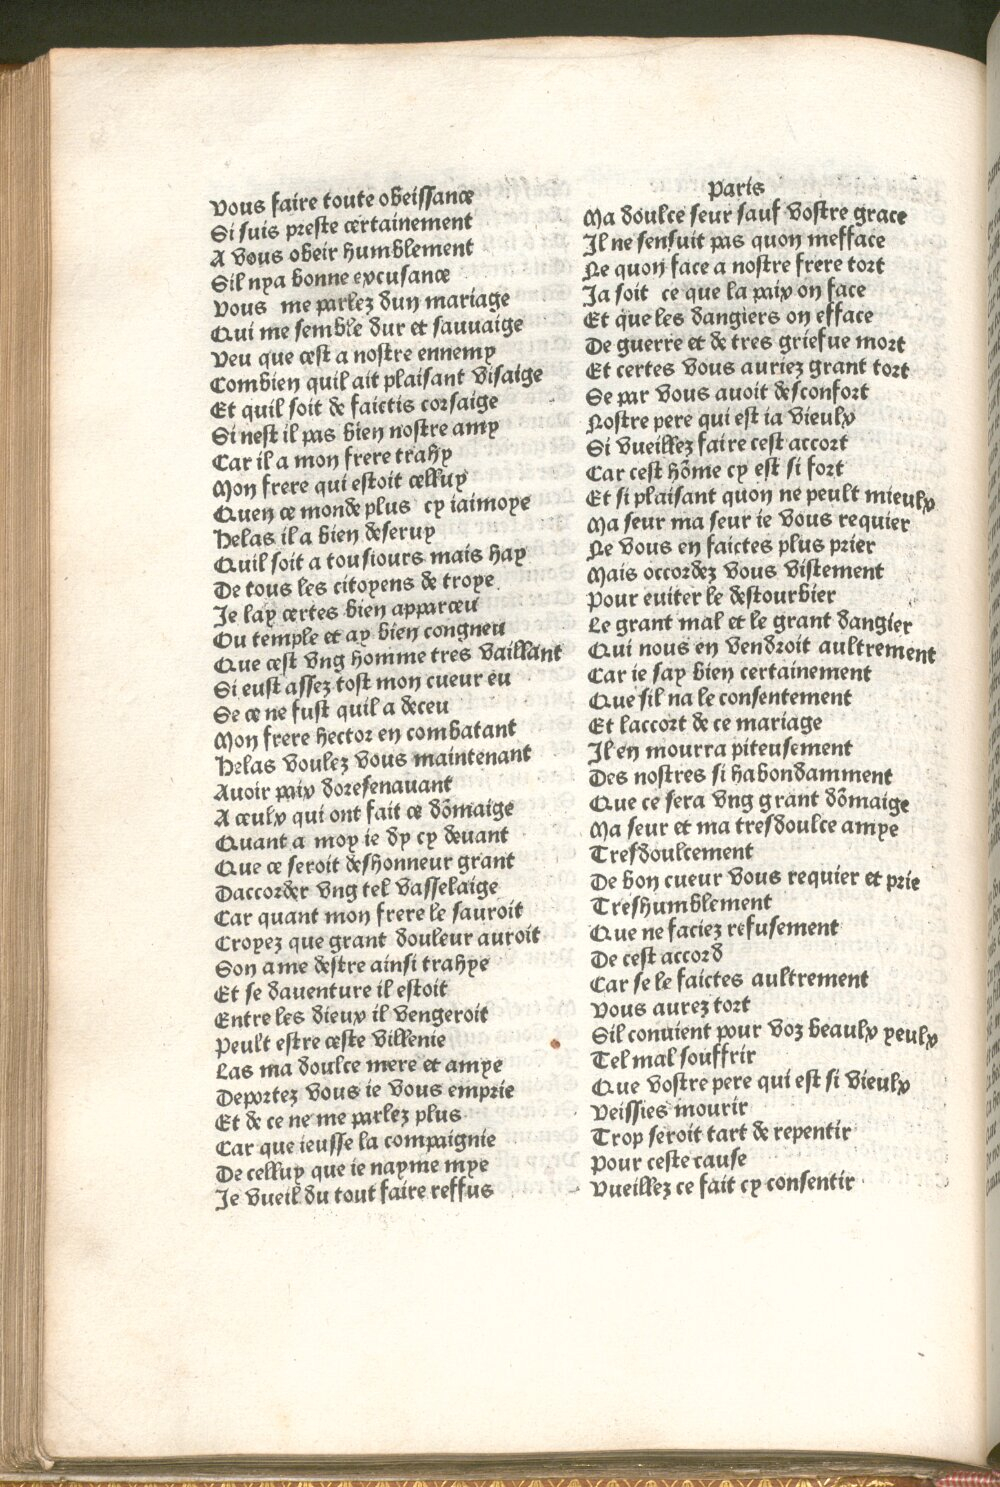 Vous faire toute obeissance
Si suis preste certainement
A vous obeir humblement
Sil nya bonne excusance
Vous me parlez dun mariage
Qui me semble dur et sauuaige
Veu que cest a nostre ennemy
Combien quil ait plaisant visaige
Et quil soit de faictis corsaige
Si nest il pas bien nostre amy
Car il a mon frere trahy
Mon frere qui estoit celluy
Quen ce monde plus cy iaimoye
Helas il a bien deseruy
Quil soit a tousiours mais hay
De tous les citoyens de troye
Je lay certes bien apparceu
Ou temple et ay bien congneu
Que cest vng homme tres vaillant
Si eust assez tost mon cueur eu
Se ce ne fust quil a deceu
Mon frere hector en combatant
Helas voulez vous maintenant
Auoir paix doresenauant
A ceulx qui ont fait ce dõmaige
Quant a moy ie dy cy deuant
Que ce seroit deshonneur grant
Daccorder vng tel vasselaige
Car quant mon frere le sauroit
Croyez que grant douleur auroit
Son ame destre ainsi trahye
Et se dauenture il estoit
Entre les dieux il vengeroit
Peult estre ceste villenie
Las ma doulce mere et amye
Deportez vous ie vous emprie
Et de ce ne me parlez plus
Car que ieusse la compaignie
De celluy que ie nayme mye
Je vueil du tout faire reffus
Paris
Ma doulce seur sauf vostre grace
Il ne sensuit pas quon mefface
Ne quon face a nostre frere tort
Ja soit ce que la paix on face
Et que les dangiers on efface
De guerre et de tres griefue mort
Et certes vous auriez grant tort
Se par vous auoit desconfort
Nostre pere qui est ia vieulx
Si vueillez faire cest accort
Car cest hõme cy est si fort
Et si plaisant quon ne peult mieulx
Ma seur ma seur ie vous requier
Ne vous en faictes plus prier
Mais occordez vous vistement
Pour euiter le destourbier
Le grant mal et le grant dangier
Qui nous en vendroit aultrement
Car ie say bien certainement
Que sil na le consentement
Et laccort de ce mariage
Il en mourra piteusement
Des nostres si habondamment
Que ce sera vng grant dõmaige
Ma seur et ma tresdoulce amye
Tresdoulcement
De bon cueur vous requier et prie
Treshumblement
Que ne faciez refusement
De cest accord
Car se le faictes aultrement
Vous aurez tort
Sil conuient pour voz beaulx yeulx
Tel mal souffrir
Que vostre pere qui est si vieulx
Veissies mourir
Trop seroit tart de repentir
Pour ceste cause
Vueillez ce fait cy consentir